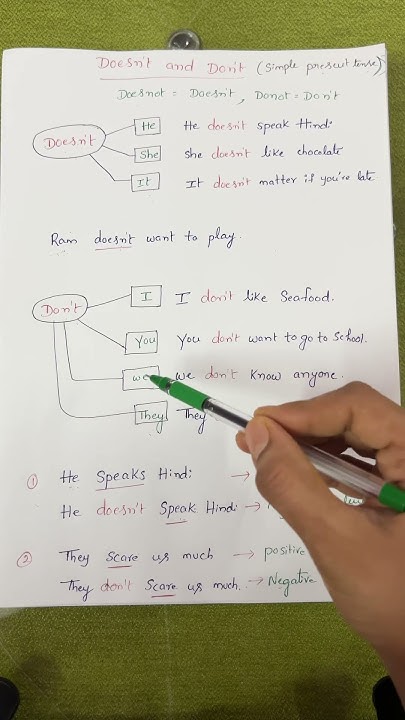 Doesn't and Don't (Simple present tense)
Doesnot = Doesn't, Donot = Don't
Doesn't
He He doesn't speak Hindi
She She doesn't like chocolate
It It doesn't matter if you're late
Ram doesn't want to play.
Don't
I I don't like Seafood.
You You don't want to go to School.
we we don't know anyone.
They They
① He Speaks Hindi →
He doesn't Speak Hindi →
② They Scare us much → positive
They don't Scare us much. → Negative